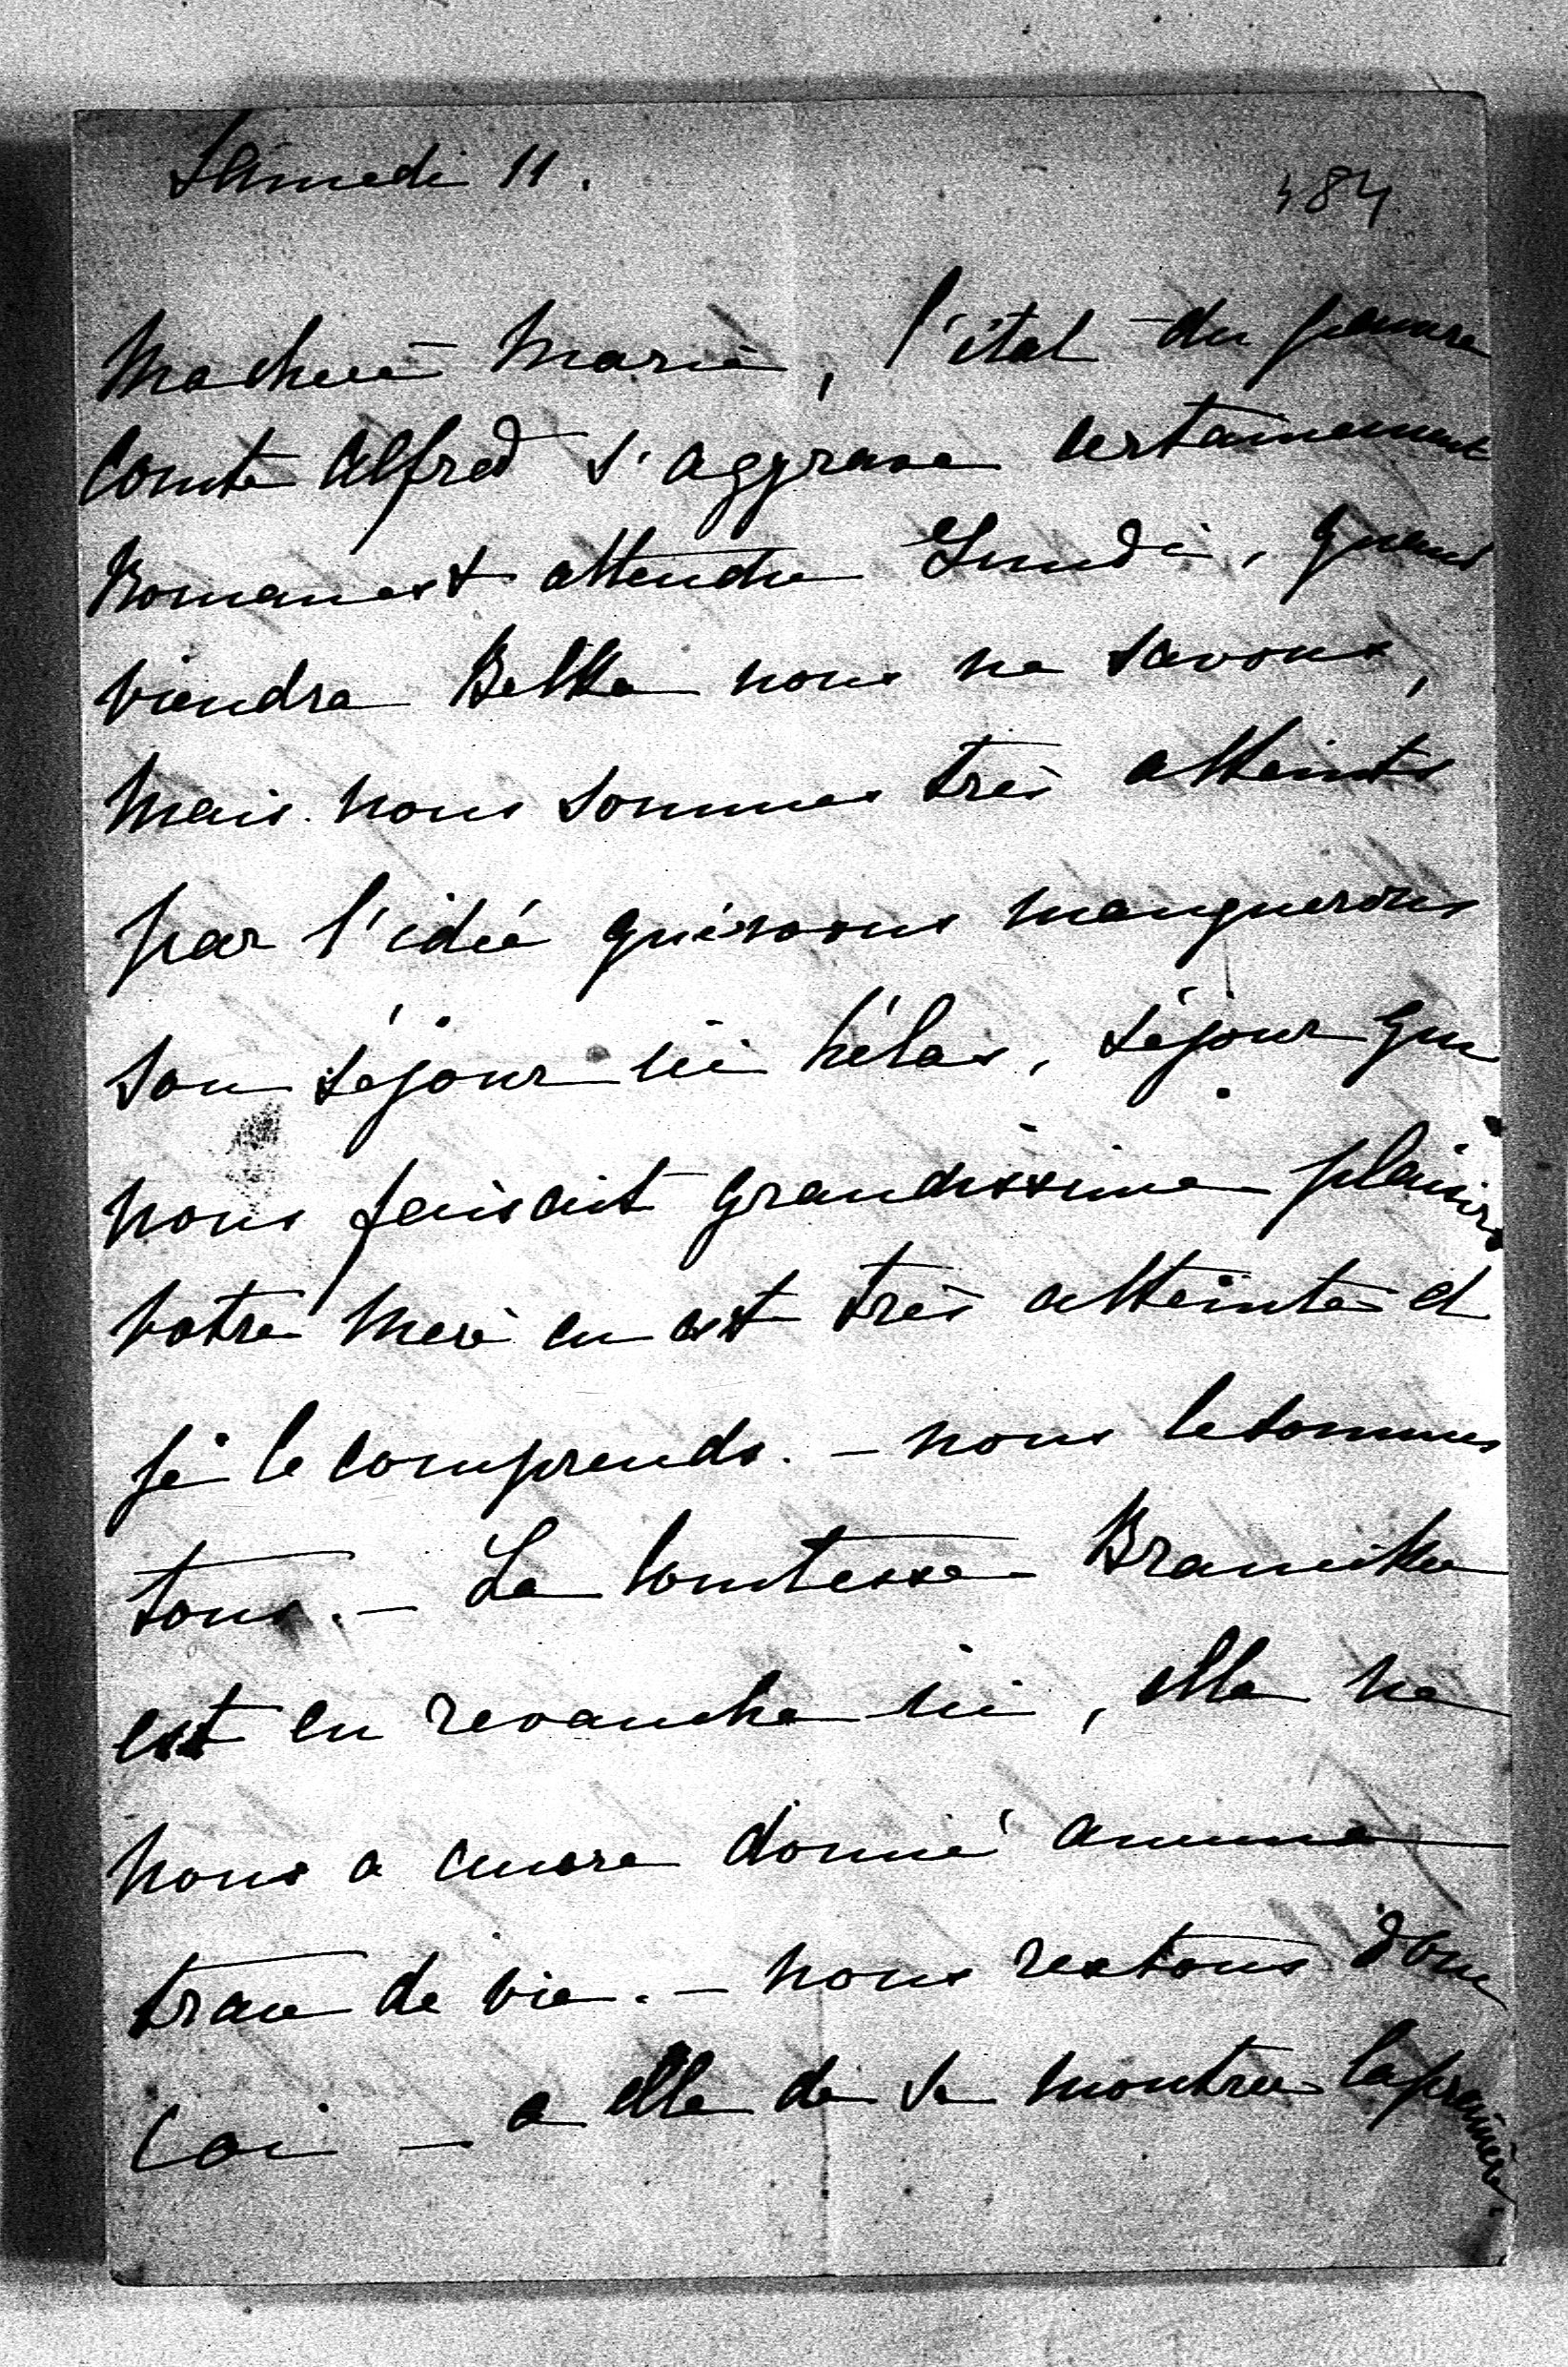 Samedi 11.
484
Ma chère Marie, l'état du pauvre
Comte Alfred s'aggrave certainement
Roman est attendu Lundi, quand
viendra Betka nous ne savons,
Mais nous sommes très atteints
par l'idée que nous manquerons
son séjour ici hélas, séjour qui
nous faisait grandissime plaisir.
Votre Mère en est très atteinte et
je le comprends. – nous le sommes
tous. – La Comtesse Branicka
est en revanche ici, elle ne
nous a encore donné aucune
trace de vie. – nous restons donc
coi – a elle de se montrer la première.